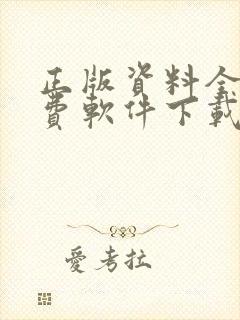 正版資料全
費軟件下載
愛考拉